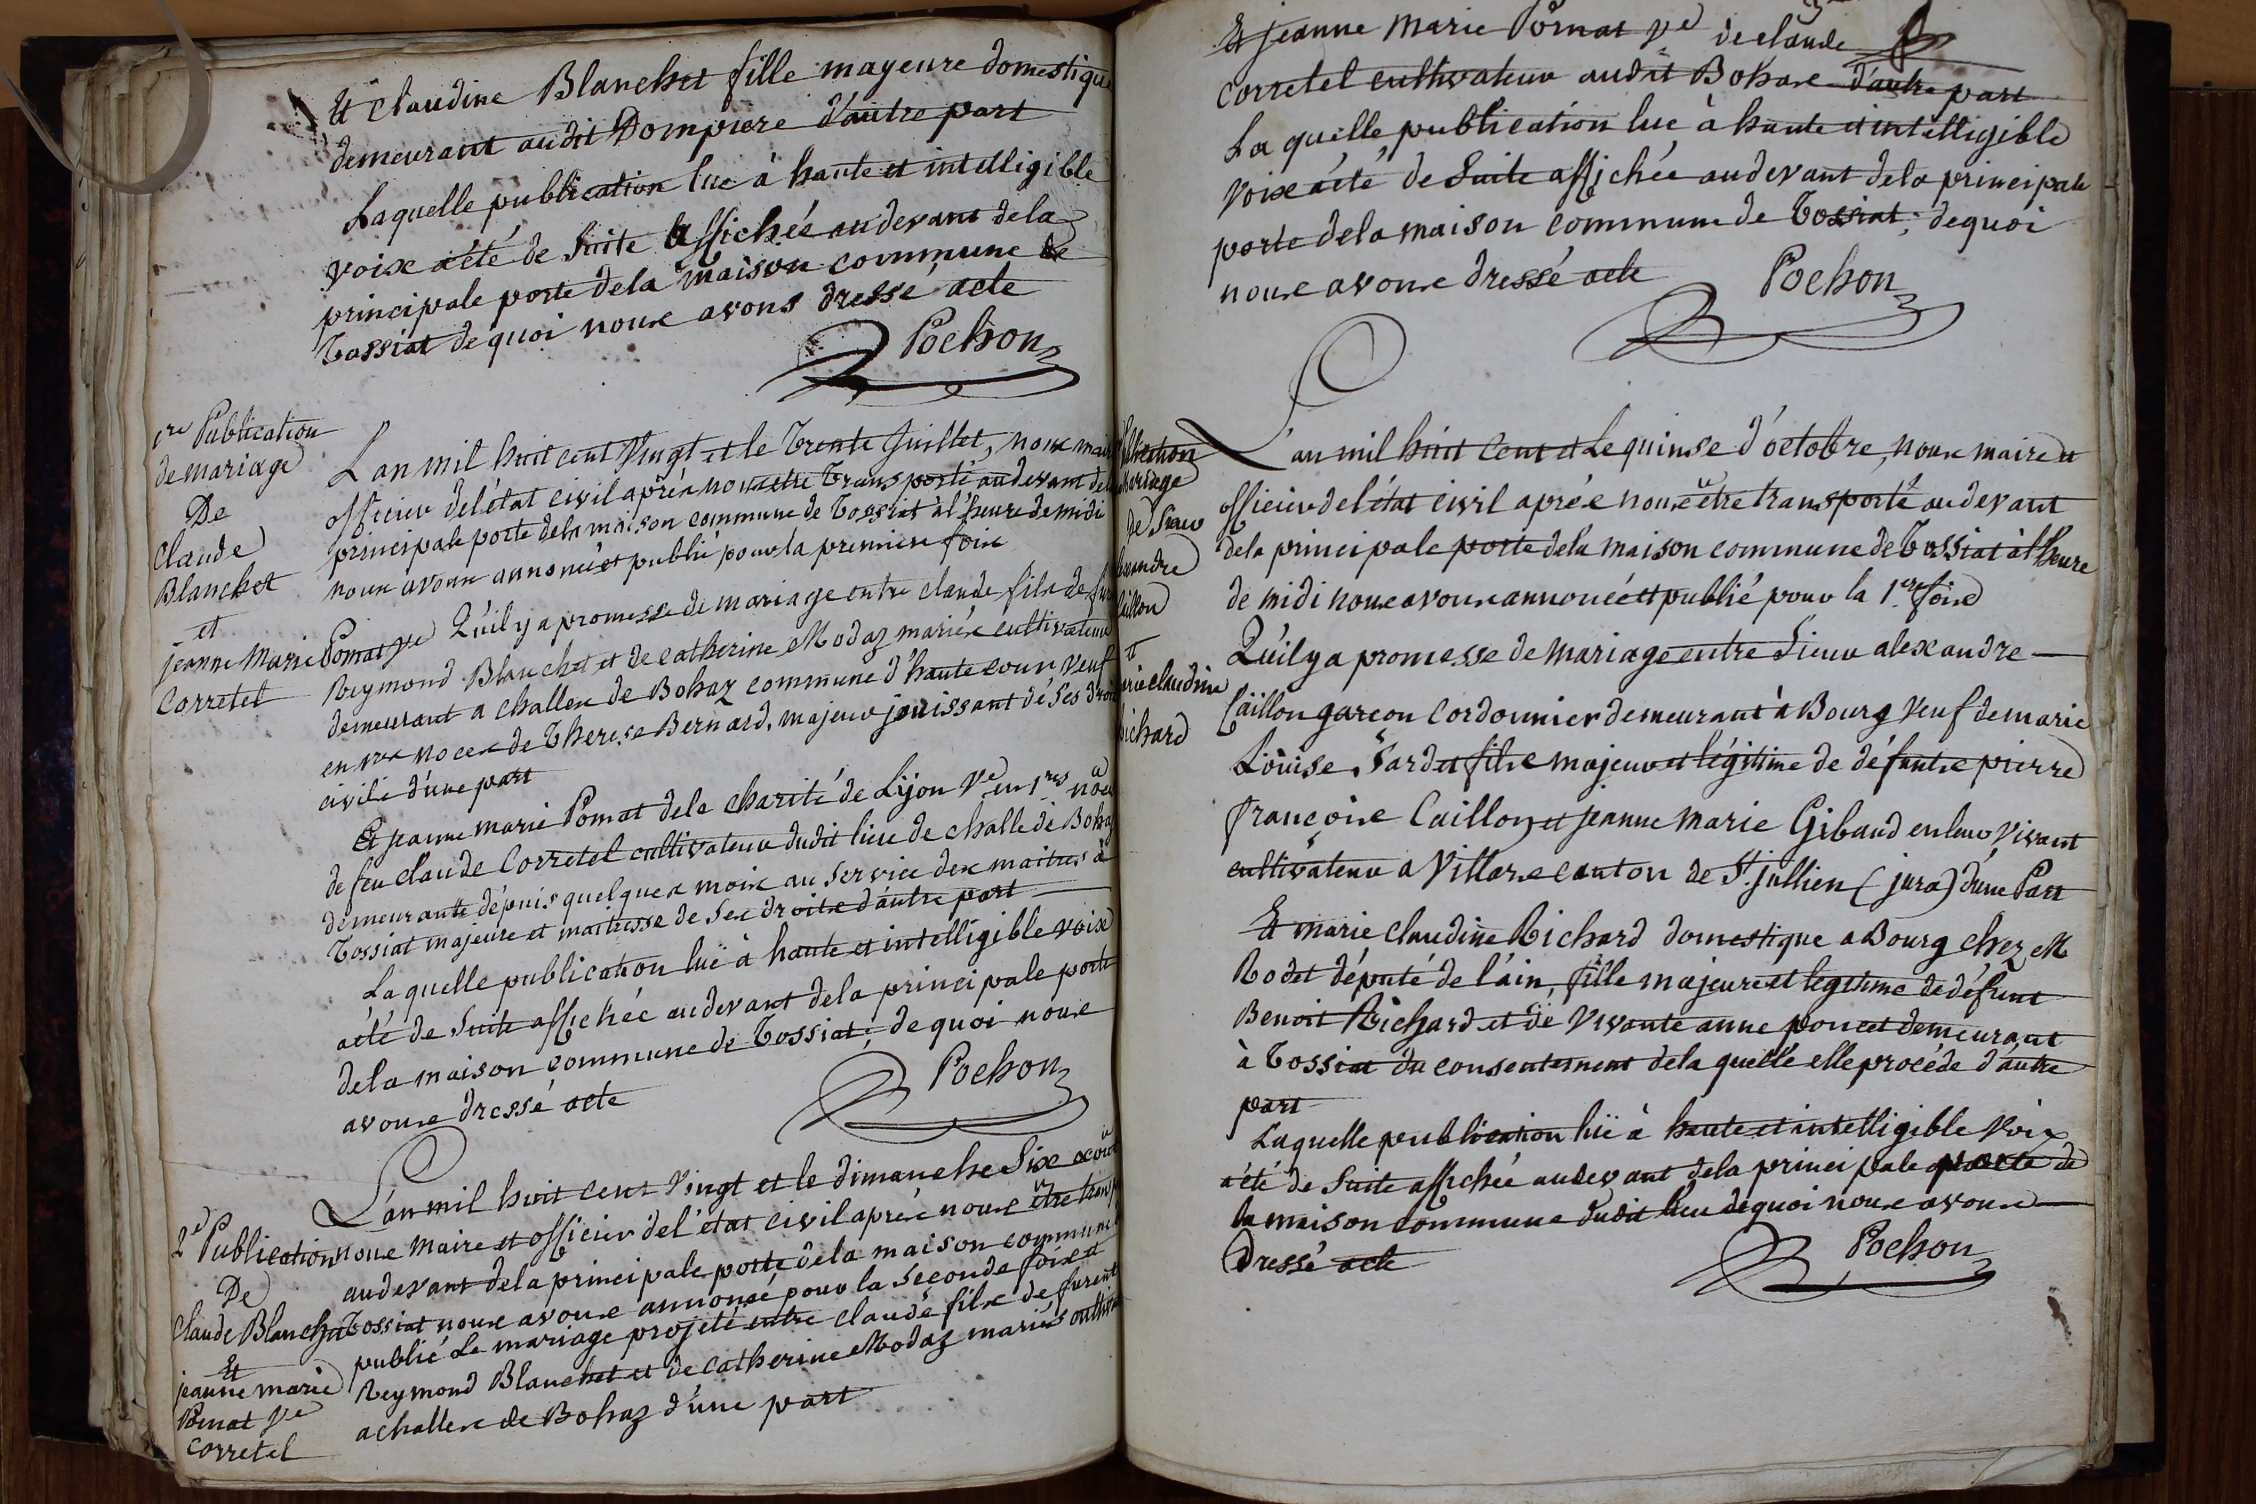 Et Claudine Blanchet fille mayeure domestique
demeurant audit Dompiere d'autre part
Laquelle publication luë à haute et intelligible
voix a été de suite affichée au devant de la
principale porte de la maison commune de
Tossiat de quoi nous avons dressé acte
Pochon
1re Publication
de mariage
De
Claude
Blanchet
et
jeanne Marie Pomat ve
Corretel
L'an mil huit cent vingt et le trente Juillet, nous maire
officier de l'état civil après nous être transporté au devant de la
principale porte de la maison commune de Tossiat à l'heure de midi
nous avons annoncé et publié pour la premiere fois
Qu'il y a promesse de mariage entre claude fils de feu
Reymond Blanchet et de catherine Modaz mariés cultivateurs
demeurant a challes de Bohaz commune d'hautecour, veuf
en 1res noces de Therese Bernard, majeur jouissant de ses droits
civils d'une part
Et jeanne marie Pomat de la charité de Lijon Ve en 1res noces
de feu claude Corretel cultivateur dudit lieu de challe de Bohaz
demeurante dépuis quelques mois au service des maitres à
Tossiat majeure et maitresse de ses droits d'autre part
Laquelle publication luë à haute et intelligible voix
a été de suite affichée au devant de la principale porte
de la maison commune de Tossiat; de quoi nous
avons dressé acte
Pochon
2e Publication
De
Claude Blanchet
Et
jeanne marie
Pomat Ve
Corretel
L'an mil huit cent vingt et le dimanche six août
nous Maire et officier de l'état civil après nous être
au devant de la principale porte de la maison commune
Tossiat nous avons annoncé pour la seconde fois et
publié le mariage projeté entre claude fils de furent
Reymond Blanchet et de catherine Modaz mariés
a challes de Bohaz d'une part
Et jeanne Marie Pomat Ve de claude
Corretel cultivateur audit Bohas d'autre part
La quelle publication luë à haute et intelligible
voix a été de suite affichée au devant de la principale
porte de la maison commune de Tossiat; de quoi
nous avons dressé acte
Pochon
de Sieur
et
L'an mil huit cent et le quinse d'octobre, nous maire et
officier de l'état civil après nous être transporté au devant
de la principale porte de la maison commune de Tossiat à l'heure
de midi nous avons annoncé et publié pour la 1ere fois
Qu'il y a promesse de mariage entre Sieur alexandre
Caillon garçon cordonnier demeurant à Bourg veuf de marie
Loüise Sardet fils majeur et légitime de défunts pierre
françois Caillon et jeanne marie Gibaud en leur vivant
cultivateurs a Villars canton de St. jullien (jura) d'une Part
Et marie claudine Richard domestique a Bourg chez M
Rodet député de l'ain, fille majeure et legitime de défunt
Benoit Richard et de vivante anne poncet demeurant
à Tossiat du consentement de la quelle elle procéde d'autre
part
Laquelle publication luë à haute et intelligible voix
a été de suite affichée au devant de la principale porte de
la maison commune dudit lieu de quoi nous avons
dressé acte
Pochon